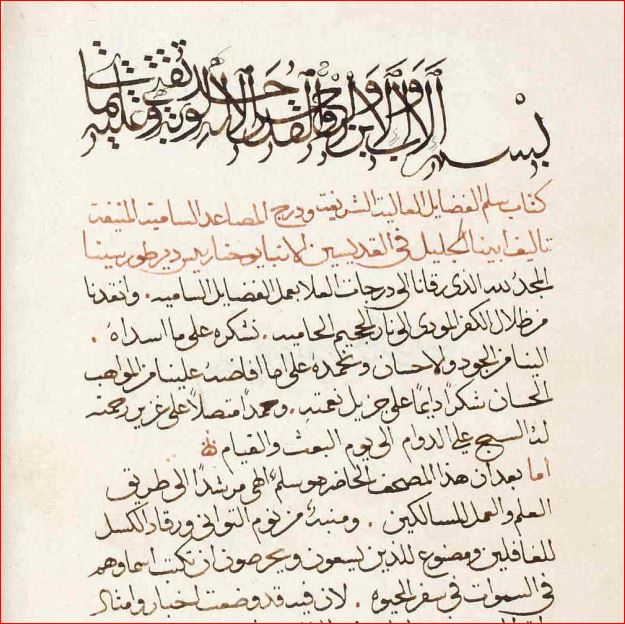 بسم الاب والابن والروح القدس الاله الواحد ثقتي وعليه
كتاب سلم الفضايل العاليه الشريفه ودرج المصاعد الساميه المنيفه
تاليف ابينا الجليل في القديسين الانبا يوحنا ريس دير طور سينا
المجد لله الذي رقانا الى درجات العلا بعمل الفضايل الساميه . وانقذنا
من ظلال الكفر المودي الى نار الجحيم الحاميه . نشكره على ما اسداه .
الينا من الجود والاحسان ونحمده على ما افاضه علينا من المواهب
الحسان شكراً دايماً على جزيل نعمته . وحمداً متصلاً على غزير رحمته
لنا السبح على الدوام الى يوم البعث والقيام
اما بعد ان هذا المصحف الحاضر هو سلم الهي مرشداً الى طريق
العلم والعمل للسالكين . ومنبه من نوم التواني ورقاد الكسل
للغافلين ومصوع للذين يسعون ويحرصون ان تكتب اسماوهم
في السموات في سفر الحيوه . لان فيه قد وضعت اخبار وامثال